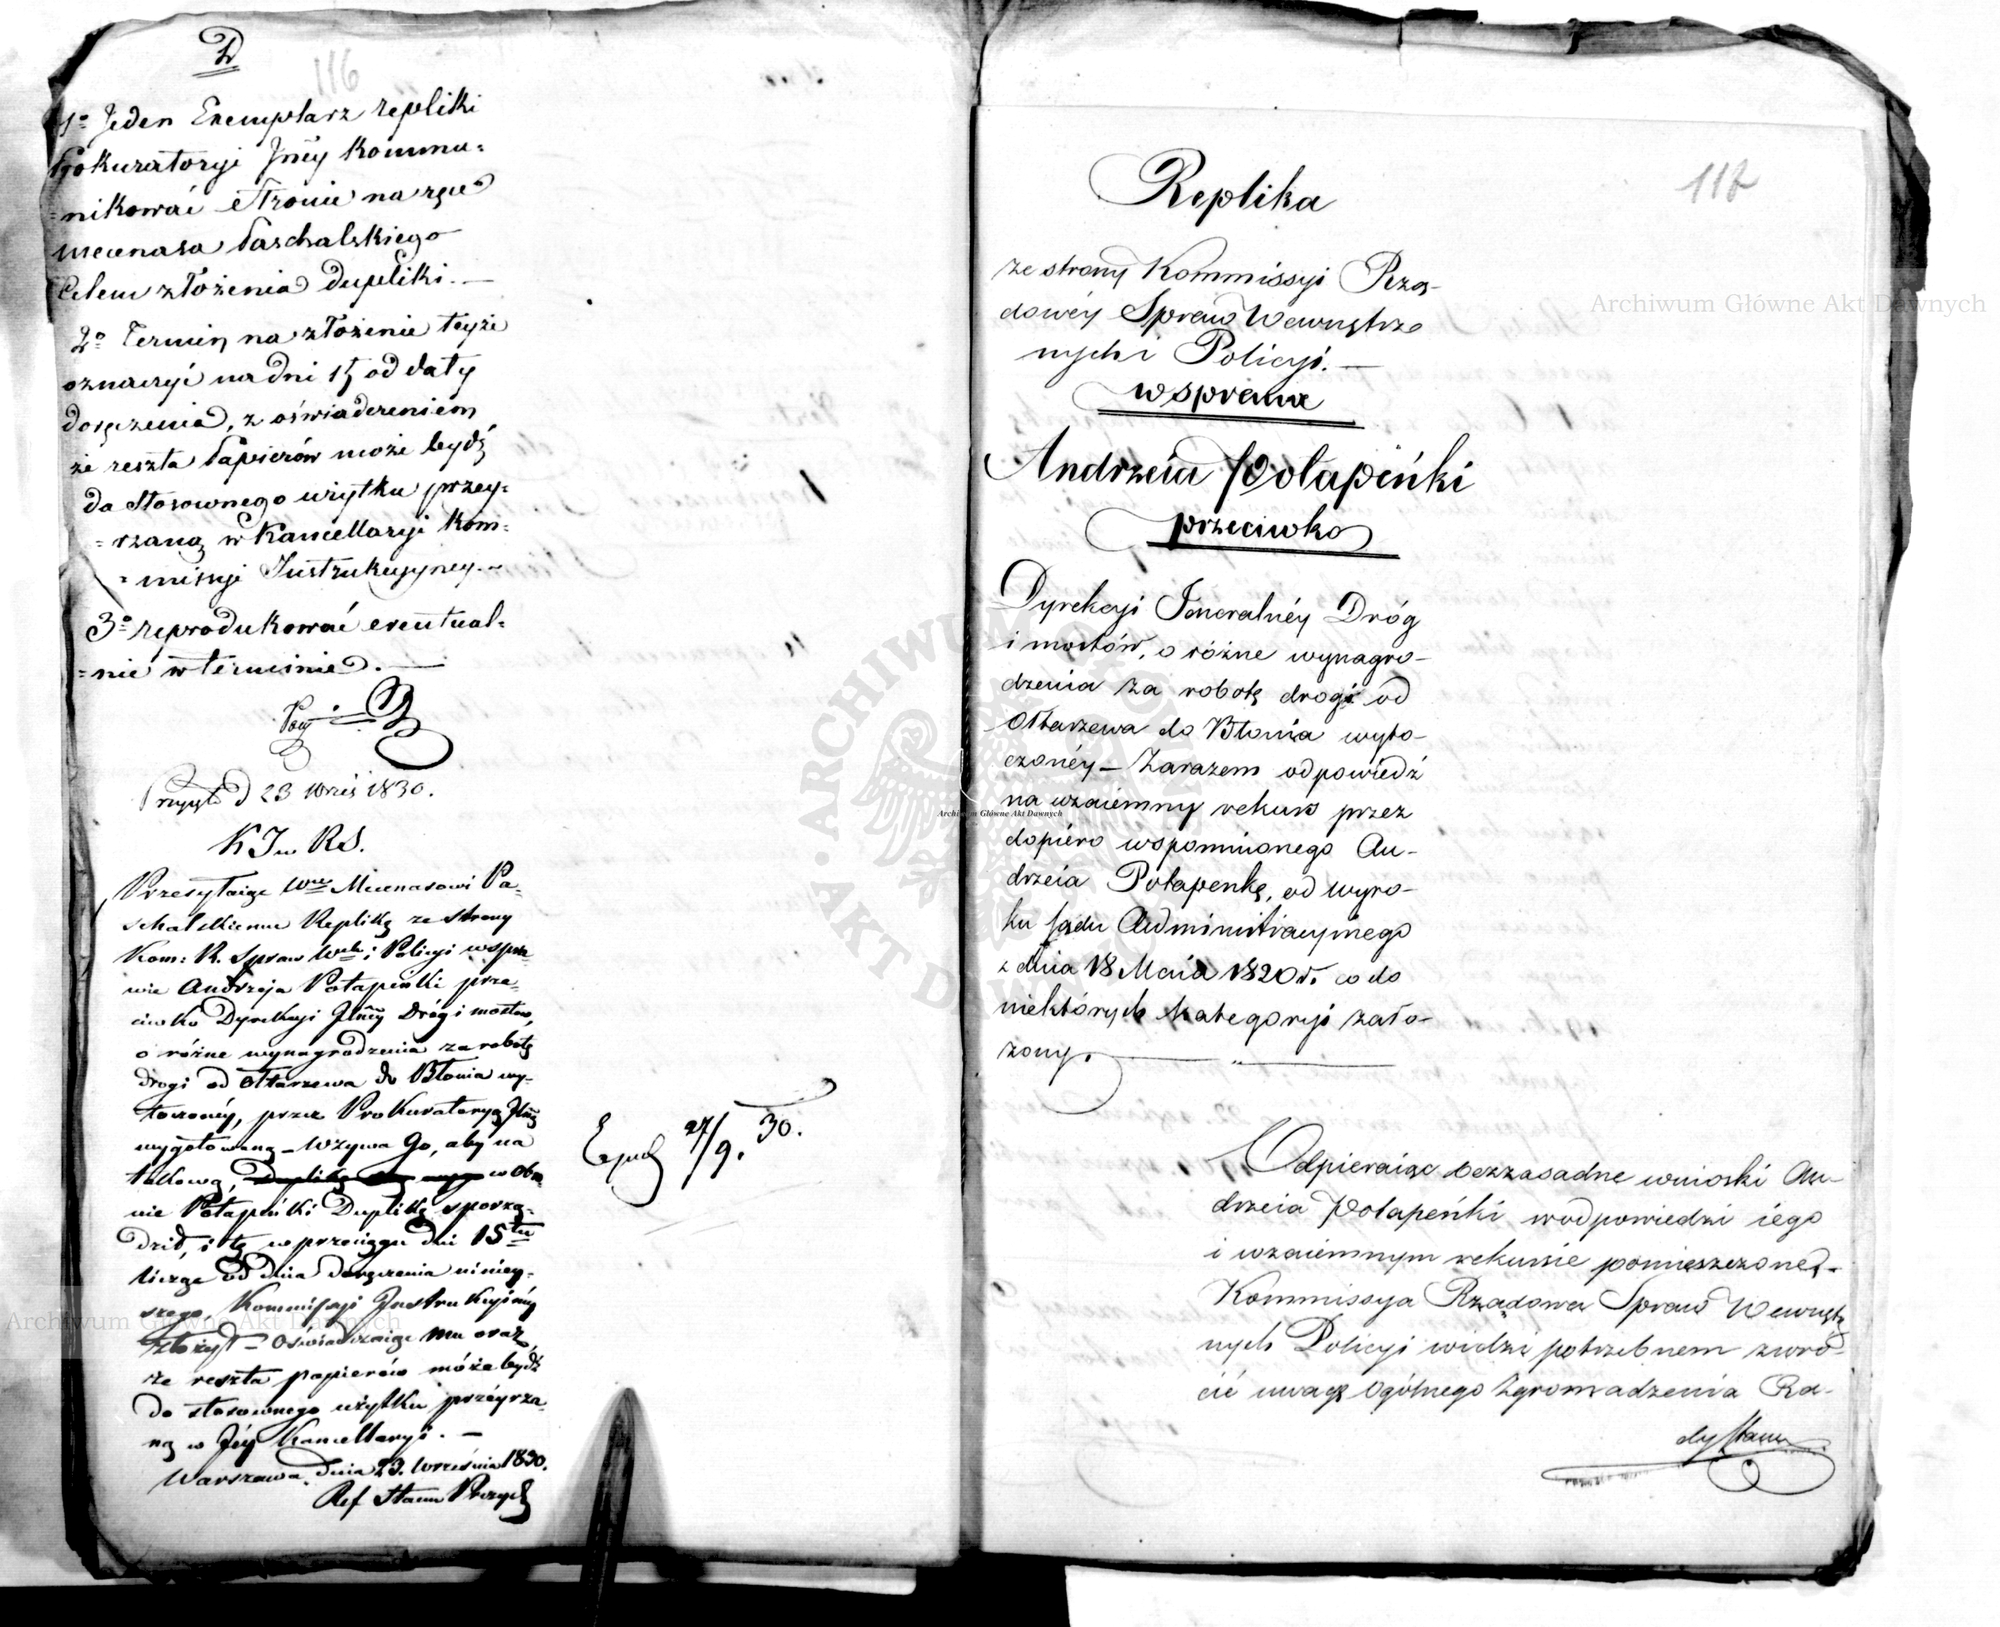 D
116
1º Jeden Exemplarz repliki
Prokuratoryi Jnéy kommu=
=nikować Stronie na ręce
mecenasa Paschalskiego
Celem złożenia dupliki. —
2º Termin na złożenie teyże
oznaczyć na dni 15 od daty
doręczenia, z oświadczeniem
że reszta Papierów może bydź
do stosownego użytku przey=
=rzaną w Kancellaryi Kom=
=missyi Instrukcyjney. —
3º reprodukować eventual=
=nie w terminie. —
d 23 Wrześ 1830.
K J w R S.
Przesyłaiąc Wmu Mecenasowi Pa=
schalskiemu Replikę ze strony
Kom: R. Spraw Weh i Policyi w spra=
wie Andrzeja Potapeńki prze=
ciwko Dyrekcyi Jlnéy Dróg i mostów,
o różne wynagrodzenia za robotę
drogi od Ołtarzewa do Błonia wy=
toczonéy, przez Prokuratoryą Jlną
wygotowaną — Wzywa Go, aby na
takową, w obro
nie Potapeńki Duplikę sporzą=
dził, i tę w przeciągu dni 15tu
licząc od dnia doręczenia niniey=
szego, Kommissyi Instrukcyinéy
złożył — Oświadczaiąc mu oraz,
że reszta papierów może bydź
do stosownego użytku przéyrza=
ną w Jéy Kancellaryi. —
Warszawa, dnia 23. Września 1830.
Ref Stanu
27/9. 30.
117
Replika
ze strony Kommissyi Rzą-
dowéy Spraw Wewnętrz
nych i Policyi. —
w sprawie
Andrzeia Potapeńki
przeciwko
Dyrekcyi Jeneralnéy Dróg
i mostów, o różne wynagro-
dzenia za robotę drogi od
Ołtarzewa do Błonia wyto-
czonéy — Zarazem odpowiedź
na wzaiemny rekurs przez
dopiéro wspomnionego An-
drzeia Potapenkę, od wyro-
ku sądu Administracyinego
z dnia 18 Maia 1820 r. co do
niektórych kategoryi zało-
żony. —
Odpieraiąc bezzasadne wnioski An-
drzeia Potapeńki w odpowiedzi iego
i wzaiemnym rekursie pomieszczone, -
Kommissya Rządowa Spraw Wewnętrz
nych Policyi widzi potrzebnem zwró-
cić uwagę Ogólnego Zgromadzenia Ra-
dy Stanu
Archiwum Główne Akt Dawnych
Archiwum Główne Akt Dawnych
Archiwum Główne Akt Dawnych
ARCHIWUM GŁÓWNE AKT DAWNYCH